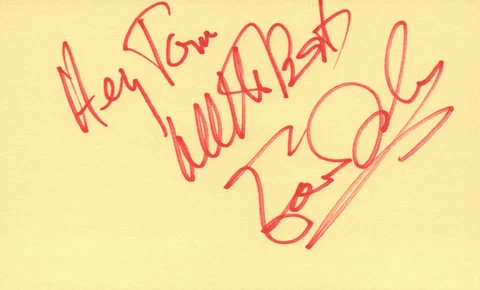 Hey Tom
All the Best